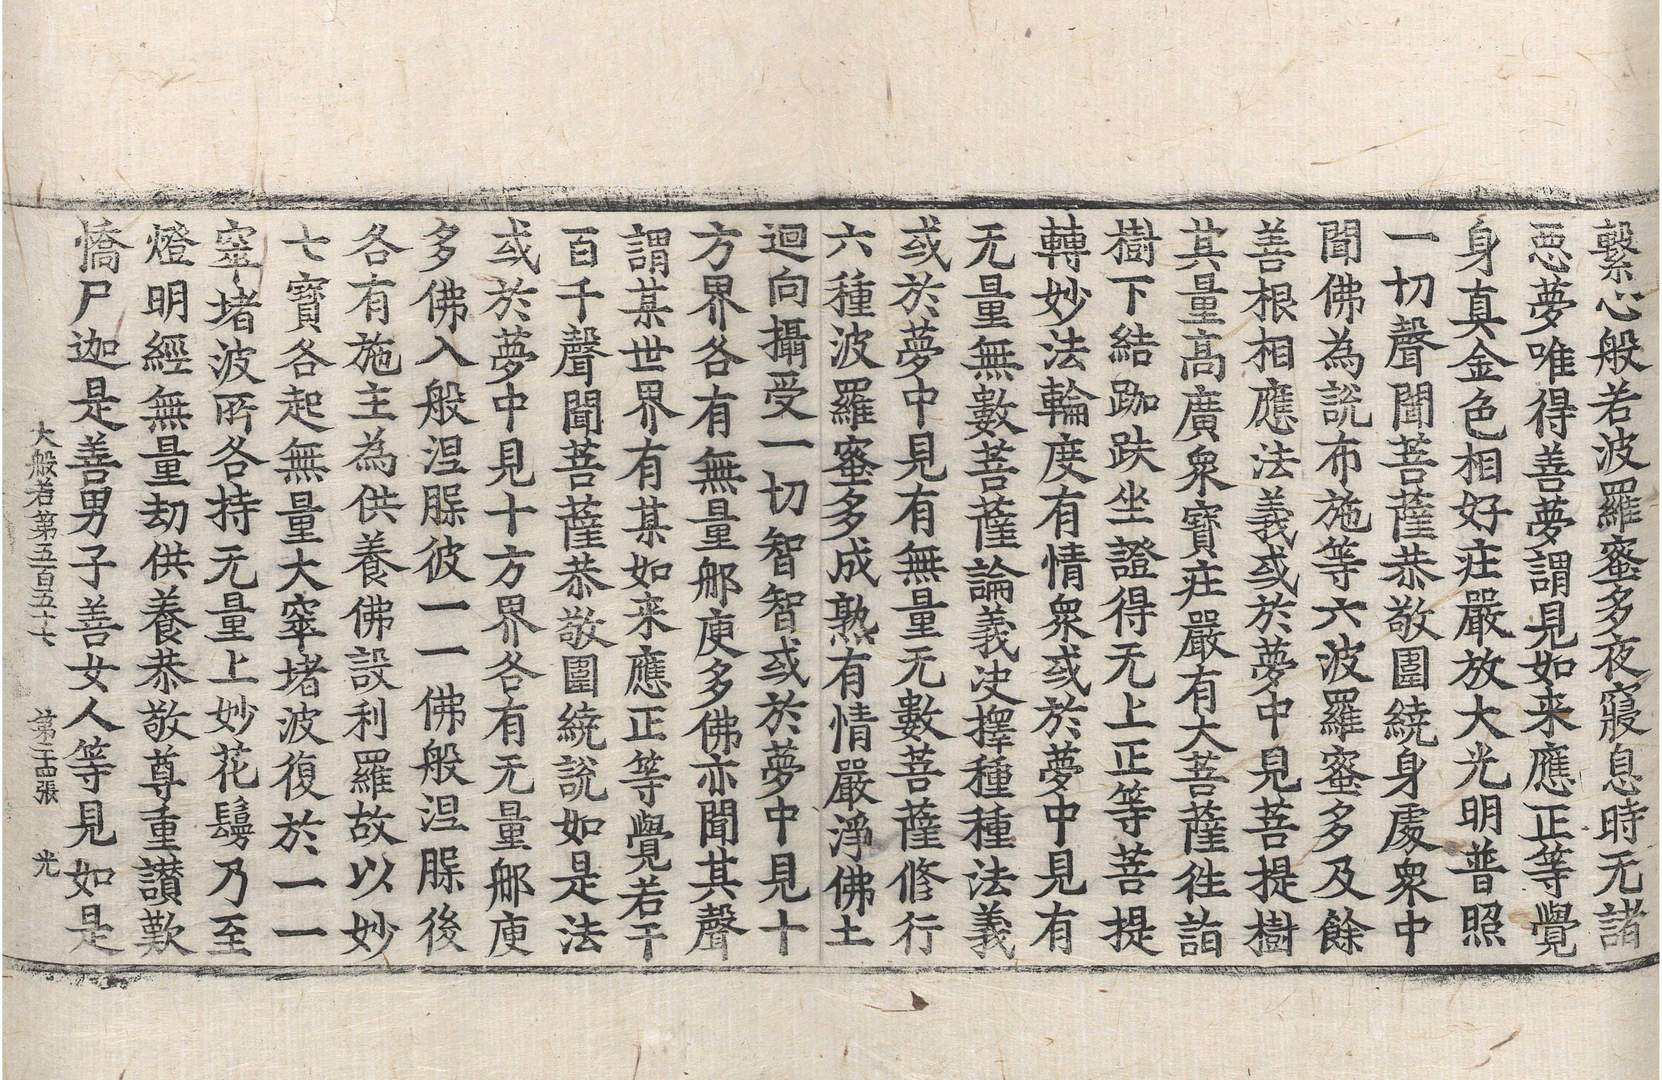 繫心般若波羅蜜多夜寢息時无諸
惡夢唯得善夢謂見如来應正等覺
身真金色相好莊嚴放大光明普照
一切聲聞菩薩恭敬圍繞身處衆中
聞佛為說布施等六波羅蜜多及餘
善根相應法義或於夢中見菩提樹
其量高廣衆寶莊嚴有大菩薩往詣
樹下結跏趺坐證得无上正等菩提
轉妙法輪度有情衆或於夢中見有
无量無數菩薩論義決擇種種法義
或於夢中見有無量无數菩薩修行
六種波羅蜜多成熟有情嚴淨佛土
迴向攝受一切智智或於夢中見十
方界各有無量郍庾多佛亦聞其聲
謂某世界有某如来應正等覺若干
百千聲聞菩薩恭敬圍繞說如是法
或於夢中見十方界各有无量郍庾
多佛入般涅槃彼一一佛般涅槃後
各有施主為供養佛設利羅故以妙
七寶各起無量大窣堵波復於一一
窣堵波所各持无量上妙花鬘乃至
燈明經無量劫供養恭敬尊重讃歎
憍尸迦是善男子善女人等見如是
大般若第五百五十七 第二十四張 光